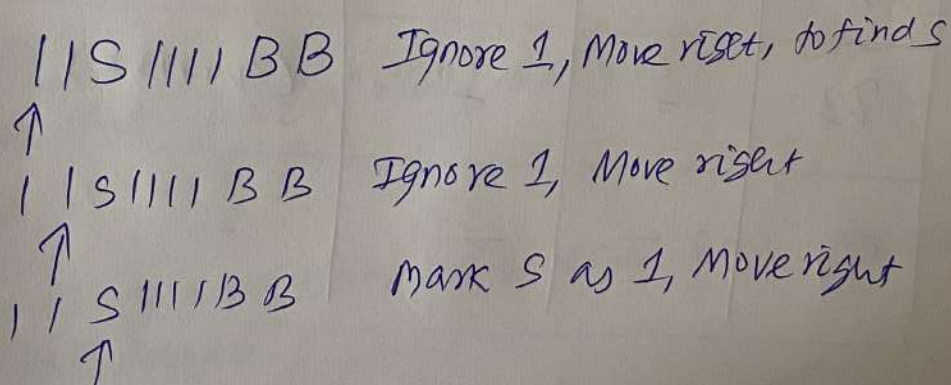 11S1111BB Ignore 1, Move right, to find S
↑
11S1111BB Ignore 1, Move right
↑
11S1111BB Mark S as 1, Move right
↑